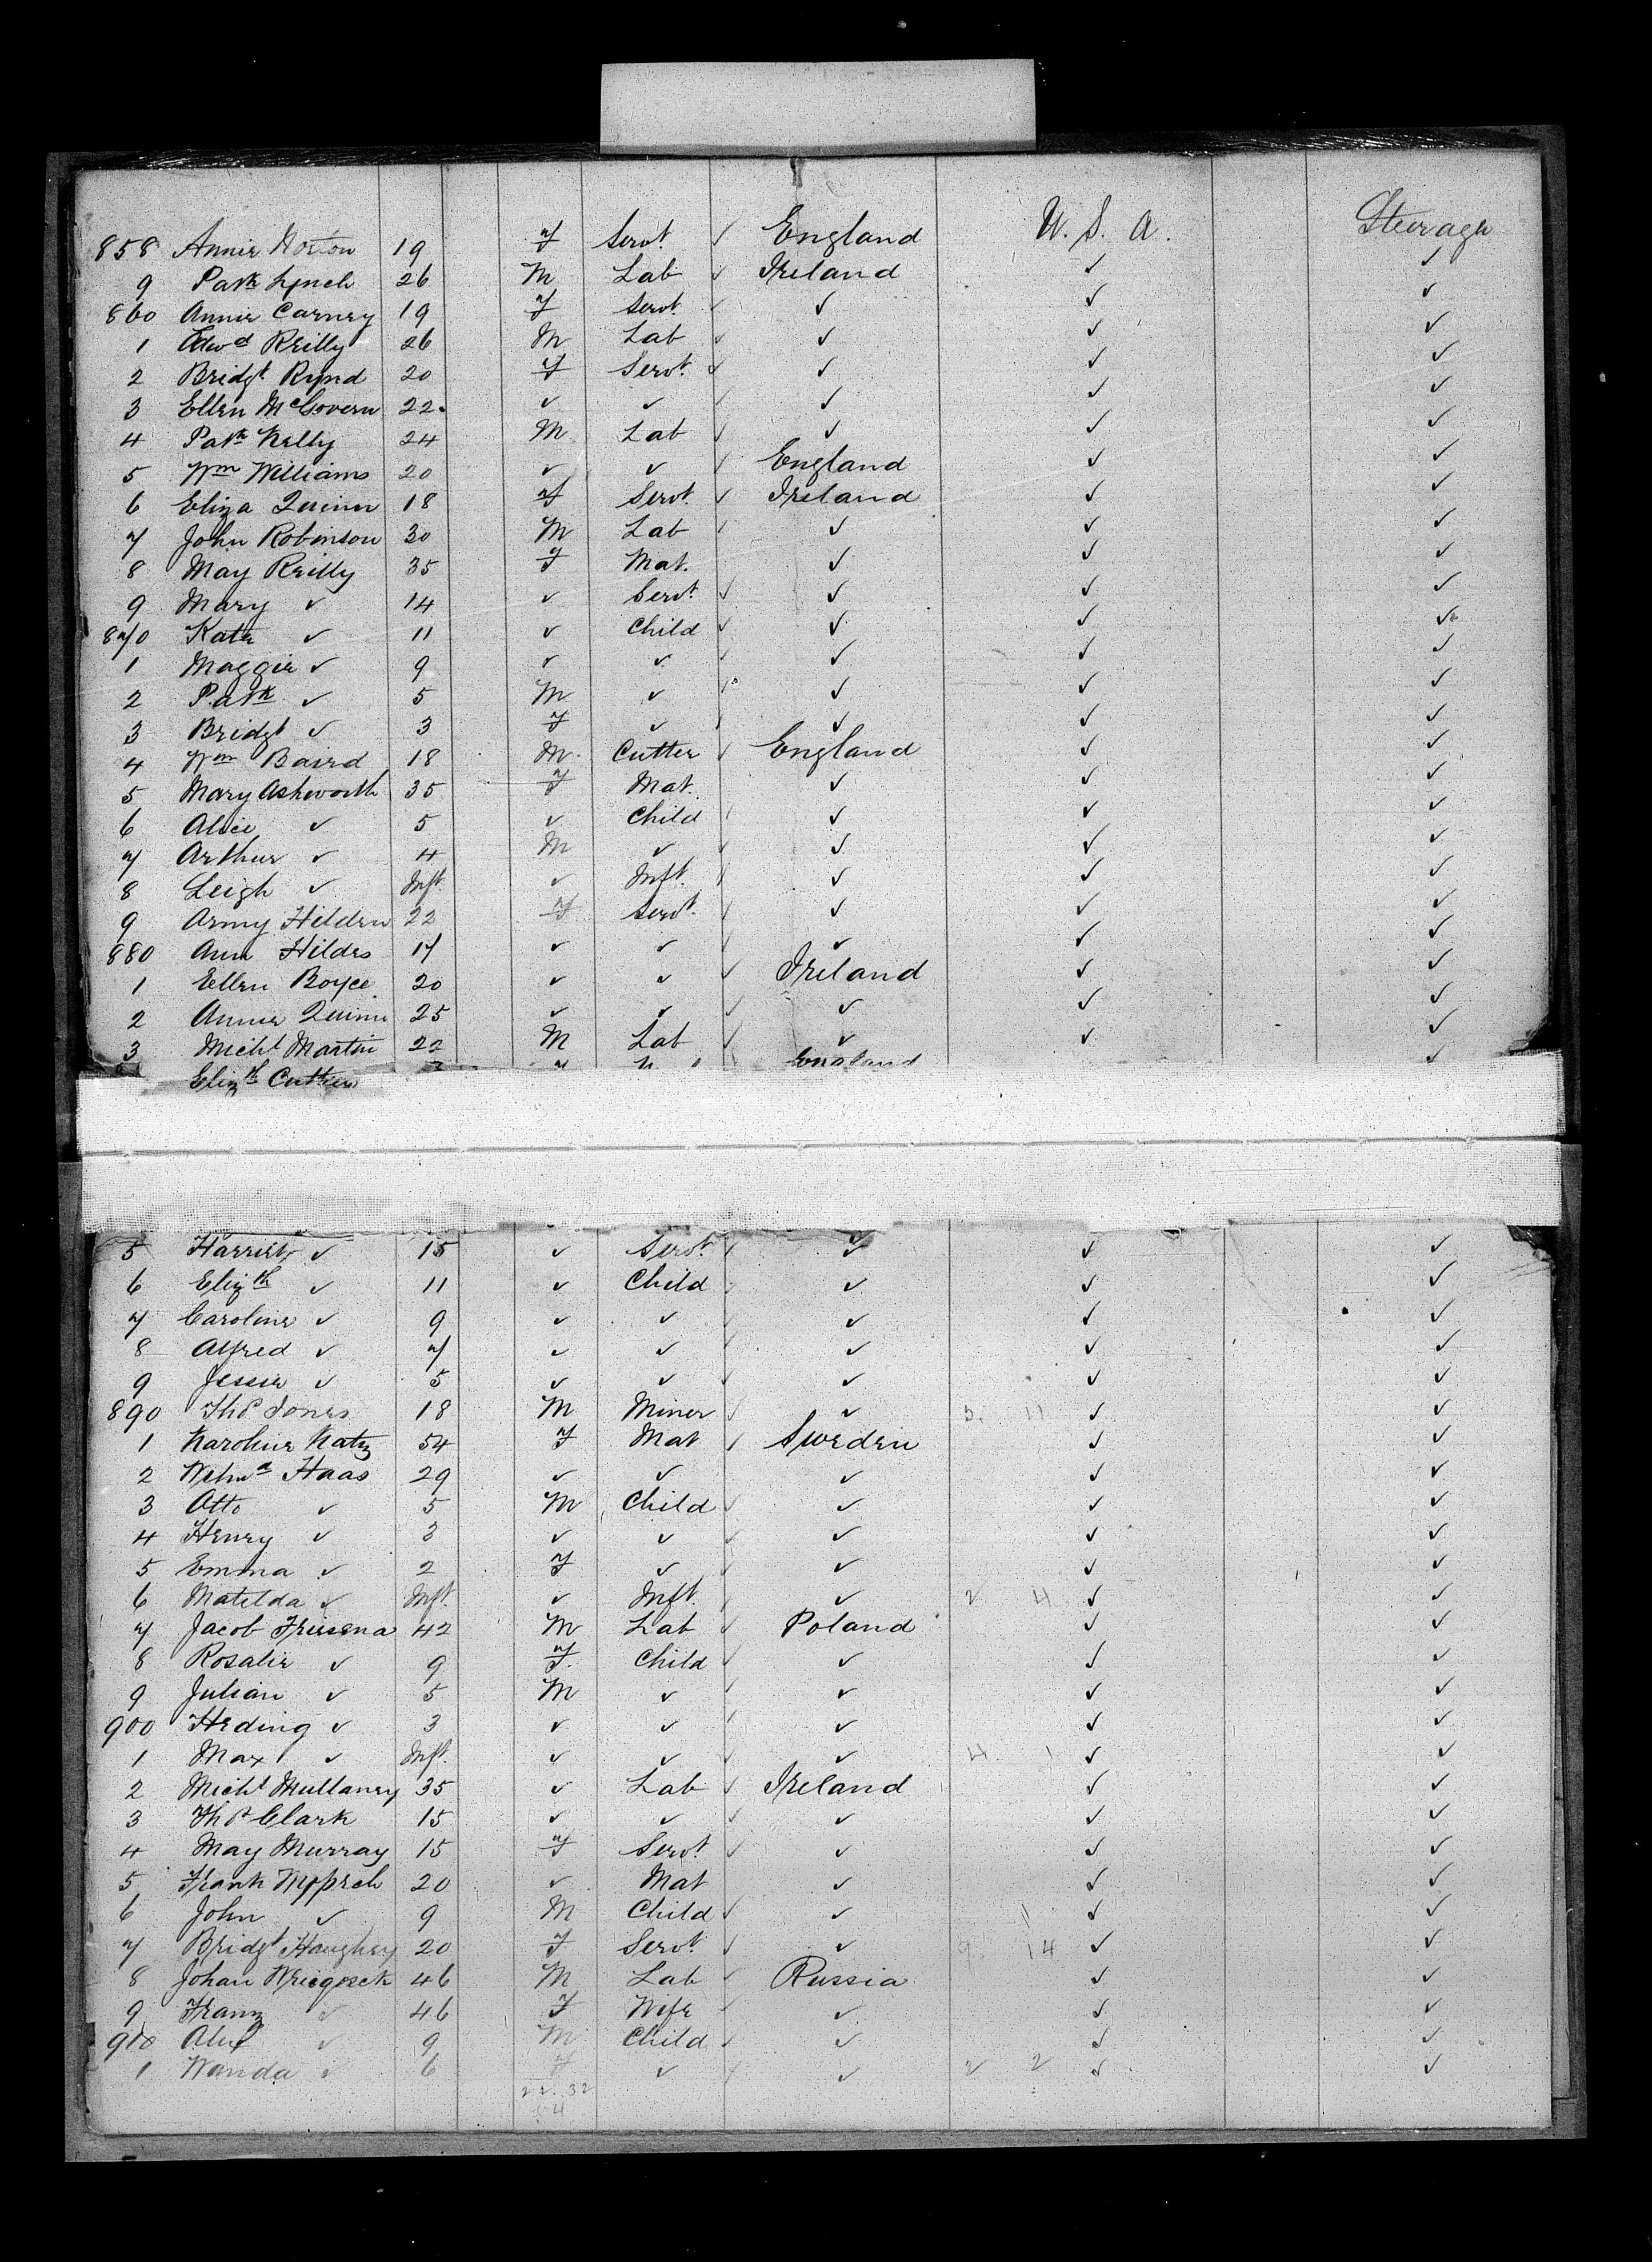 858 Annie Norton 19 F Servt. ✓ England U. S. A. Steerage
9 Patk Lynch 26 M Lab ✓ Ireland ✓ ✓
860 Annie Carney 19 F Servt. ✓ ✓ ✓ ✓
1 Edwd Reilly 26 M Lab ✓ ✓ ✓ ✓
2 Bridgt Rynd 20 F Servt. ✓ ✓ ✓ ✓
3 Ellen McGovern 22 ✓ ✓ ✓ ✓ ✓ ✓
4 Patk Kelly 24 M Lab ✓ ✓ ✓ ✓
5 Wm Williams 20 ✓ ✓ ✓ England ✓ ✓
6 Eliza Quinn 18 F Servt. ✓ Ireland ✓ ✓
7 John Robinson 30 M Lab ✓ ✓ ✓ ✓
8 May Reilly 35 F Mat. ✓ ✓ ✓
9 Mary ✓ 14 ✓ Servt. ✓ ✓ ✓ ✓
870 Kate ✓ 11 ✓ Child ✓ ✓ ✓ ✓
1 Maggie ✓ 9 ✓ ✓ ✓ ✓ ✓ ✓
2 Patk ✓ 5 M ✓ ✓ ✓ ✓ ✓
3 Bridgt ✓ 3 F ✓ ✓ ✓ ✓ ✓
4 Wm Baird 18 M Cutter ✓ England ✓ ✓
5 Mary Ashworth 35 F Mat. ✓ ✓ ✓
6 Alice ✓ 5 ✓ Child ✓ ✓ ✓ ✓
7 Arthur ✓ 4 M ✓ ✓ ✓ ✓ ✓
8 Leigh ✓ Inft. ✓ Inft. ✓ ✓ ✓ ✓
9 Army 22 F Servt. ✓ ✓ ✓ ✓
880 Ann Hildes 17 ✓ ✓ ✓ ✓ ✓ ✓
1 Ellen Boyce 20 ✓ ✓ ✓ Ireland ✓ ✓
2 Annie Quinn 25 ✓ ✓ ✓ ✓ ✓ ✓
3 Michl Martin 22 M Lab ✓ ✓ ✓ ✓
Elizth England ✓
5 Harriet ✓ 15 ✓ Servt. ✓ ✓ ✓ ✓
6 Elizth ✓ 11 ✓ Child ✓ ✓ ✓ ✓
7 Caroline ✓ 9 ✓ ✓ ✓ ✓ ✓ ✓
8 Alfred ✓ 7 ✓ ✓ ✓ ✓ ✓ ✓
9 Jessie ✓ 5 ✓ ✓ ✓ ✓ ✓ ✓
890 Thos Jones 18 M Miner ✓ ✓ 3. 11 ✓ ✓
1 Karoline Katz 54 F Mat ✓ Sweden ✓ ✓
2 Welma Haas 29 ✓ ✓ ✓ ✓ ✓
3 Otto ✓ 5 M Child ✓ ✓ ✓ ✓
4 Henry ✓ 3 ✓ ✓ ✓ ✓ ✓ ✓
5 Emma ✓ 2 F ✓ ✓ ✓ ✓ ✓
6 Matilda ✓ Inft. ✓ Inft. ✓ ✓ 2 4 ✓ ✓
7 Jacob 42 M Lab ✓ Poland ✓ ✓
8 Rosalie ✓ 9 F. Child ✓ ✓ ✓ ✓
9 Julian ✓ 5 M ✓ ✓ ✓ ✓ ✓
900 Heding ✓ 3 ✓ ✓ ✓ ✓ ✓ ✓
1 Max ✓ Inft. ✓ ✓ ✓ ✓ 4. 1 ✓ ✓
2 Michl Mullaney 35 ✓ Lab ✓ Ireland ✓ ✓
3 Thos Clark 15 ✓ ✓ ✓ ✓ ✓ ✓
4 May Murray 15 F Servt. ✓ ✓ ✓ ✓
5 Frank 20 ✓ Mat ✓ ✓ ✓
6 John ✓ 9 M Child ✓ ✓ ✓ ✓
7 Bridgt Haughey 20 F Servt. ✓ ✓ 9. 14 ✓ ✓
8 Johan 46 M Lab ✓ Russia ✓ ✓
9 Franz ✓ 46 F Wife ✓ ✓ ✓ ✓
910 ✓ 9 M Child ✓ ✓ ✓ ✓
1 Wanda ✓ 6 F ✓ ✓ ✓ 2 2 ✓ ✓
22. 32
54